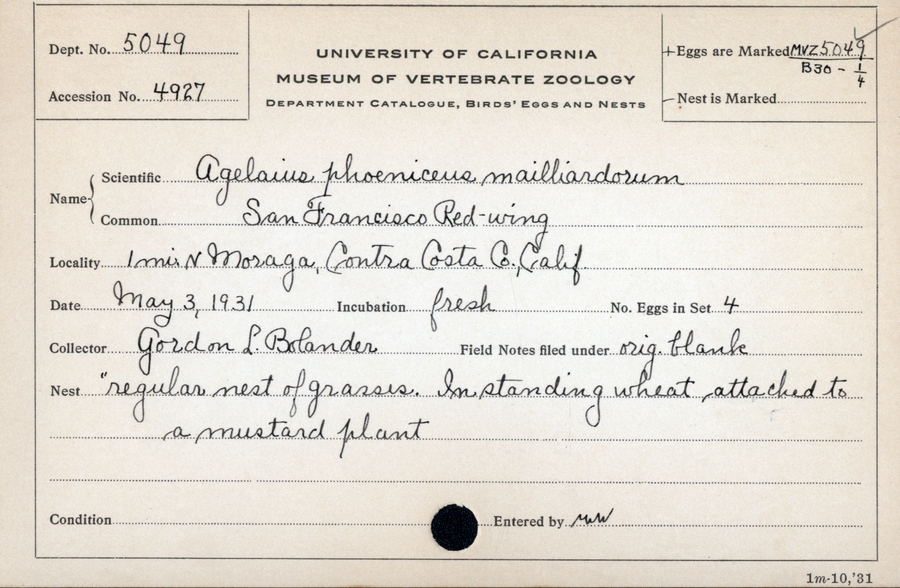 Dept. No. 5049
Accession No. 4927
UNIVERSITY OF CALIFORNIA
MUSEUM OF VERTEBRATE ZOOLOGY
DEPARTMENT CATALOGUE, BIRDS' EGGS AND NESTS
+Eggs are Marked MVZ5049
B30 - 1/4
-Nest is Marked
Name
Scientific Agelaius phoeniceus mailliardorum
Common San Francisco Red-wing
Locality 1 mi. N Moraga, Contra Costa Co., Calif
Date May 3, 1931 Incubation fresh No. Eggs in Set 4
Collector Gordon L. Bolander Field Notes filed under orig. blank
Nest "regular nest of grasses. In standing wheat attached to
a mustard plant
Condition Entered by
1m-10,'31